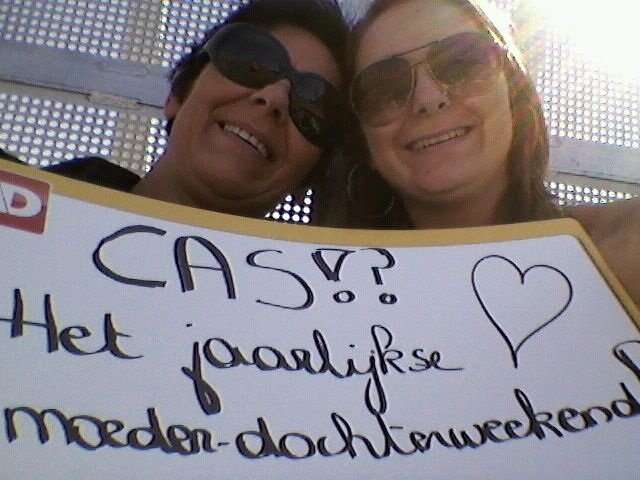 CAS!??
Het jaarlijkse
moeder-dochterweekend